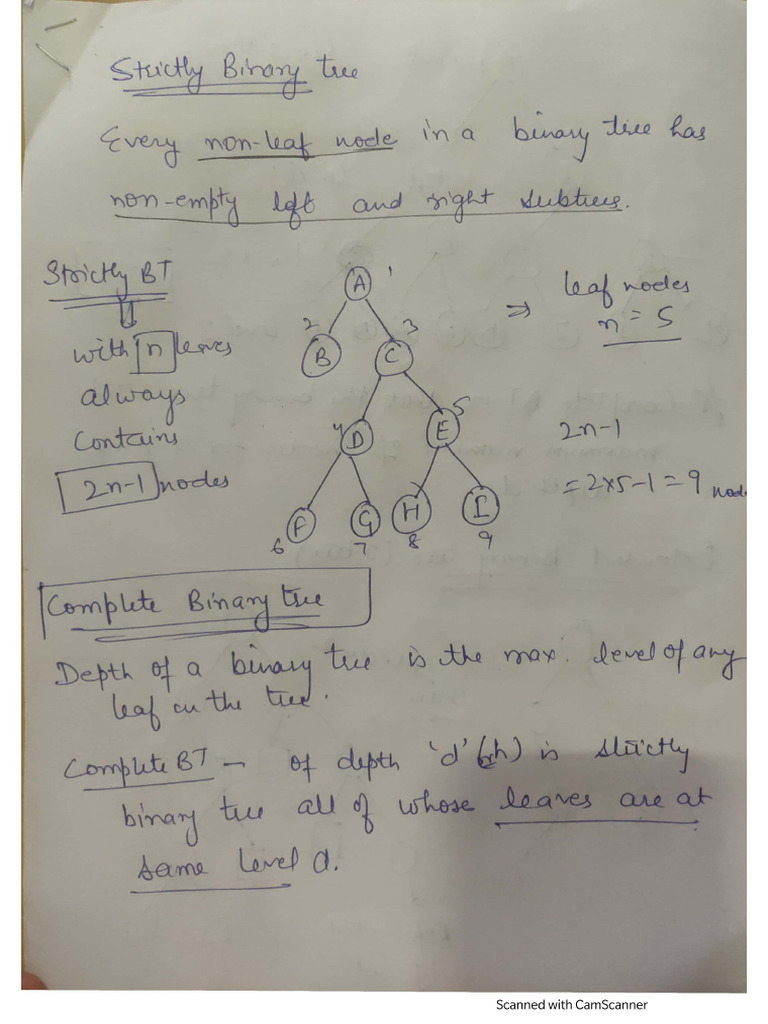 Strictly Binary tree
Every non-leaf node in a binary tree has
non-empty left and right subtrees.
Strictly BT
with n leaves
always
contains
2n-1 nodes
A 1
2 3
B C
4 5
D E
F G H I
6 7 8 9
⇒ leaf nodes
n = 5
2n-1
= 2×5-1 = 9 nod
Complete Binary tree
Depth of a binary tree is the max. level of any
leaf in the tree.
Complete BT - of depth 'd' (h) is strictly
binary tree all of whose leaves are at
same level d.
Scanned with CamScanner